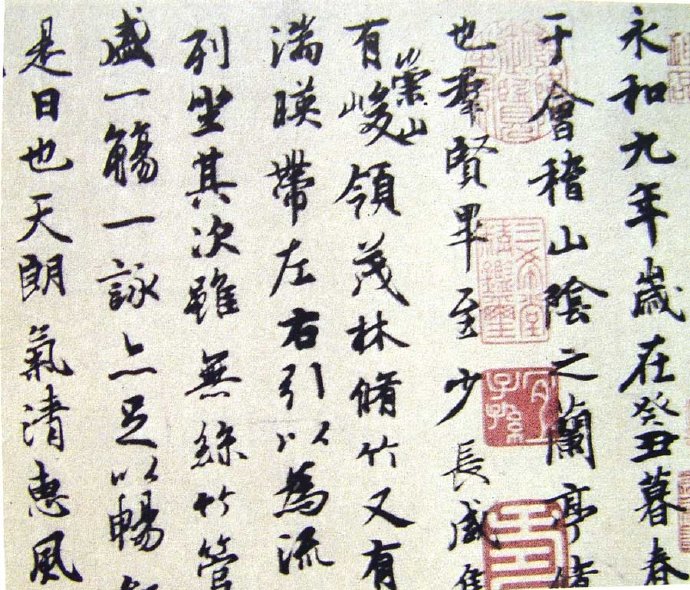 永和九年歲在癸丑暮春
于會稽山陰之蘭亭脩
也羣賢畢至少長咸集
有崇山峻領茂林脩竹又有
湍暎帶左右引以為流
列坐其次雖無絲竹管
盛一觴一詠亦足以暢
是日也天朗氣清惠風
三希堂精鑑璽